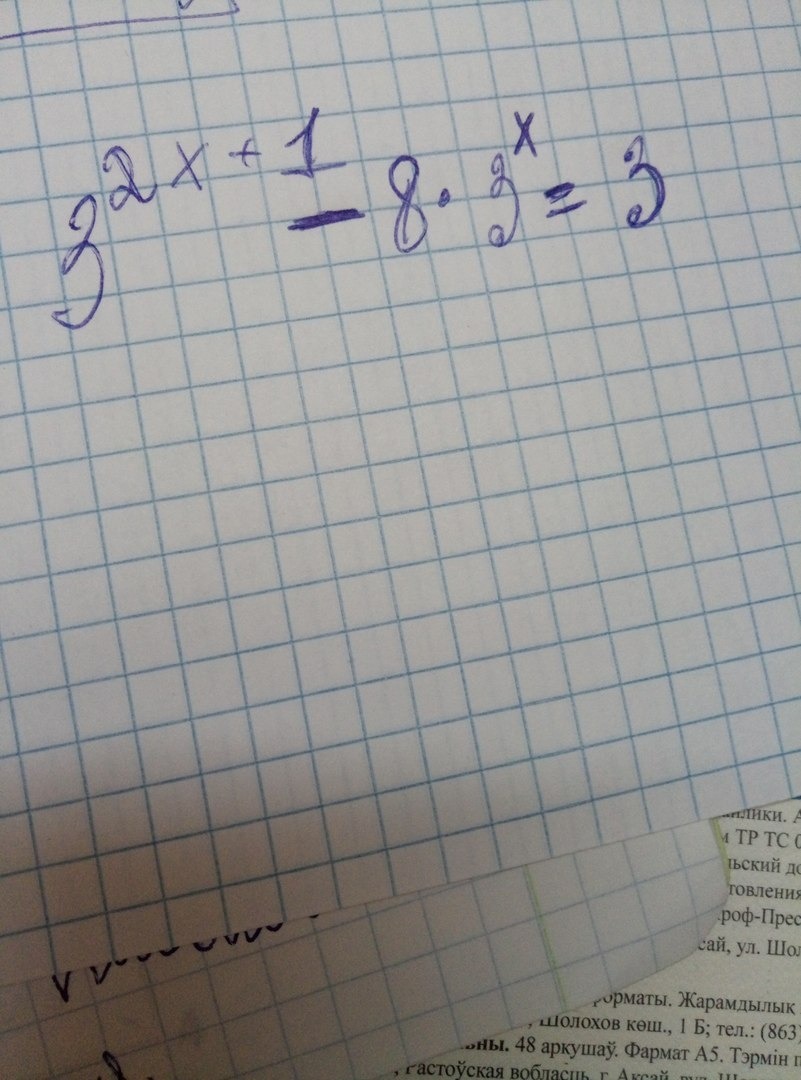 3^{2x+1} - 8 · 3^x = 3
лики. А
ТР ТС 0
льский до
товления
роф-Прес
сай, ул. Шол
орматы. Жарамдылык
, Шолохов көш., 1 Б; тел.: (863)
ны. 48 аркушаў. Фармат А5. Тэрмін п
, Растоўская вобласць, г. Аксай, вул. Ш